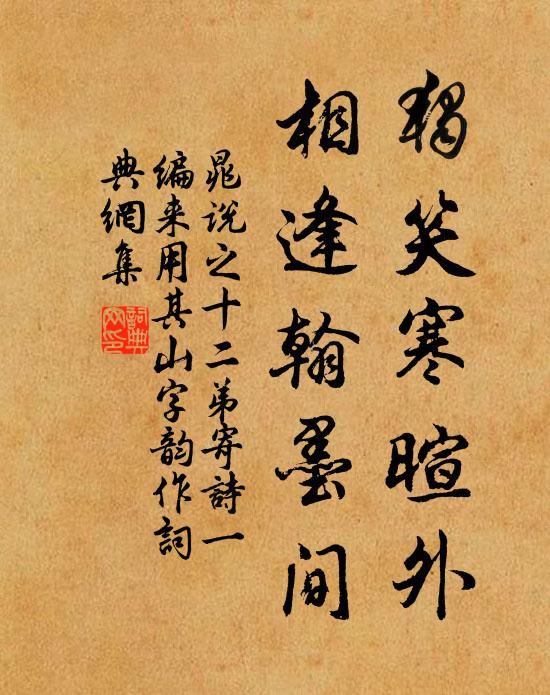 独笑寒暄外
相逢翰墨间
晁说之十二弟寄詩一
编来用其山字韵作詞
典網集
詞典
网印